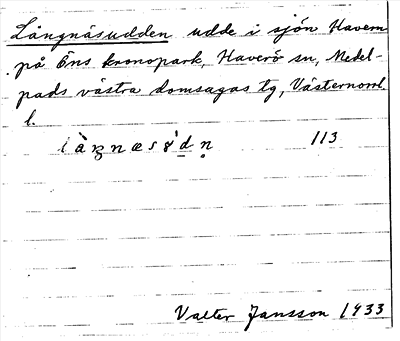 Långnäsudden udde i sjön Havern
på Öns kronopark, Haverö sn, Medel-
pads västra domsagas tg, Västernorrl.
l.
113
Valter Jansson 1933